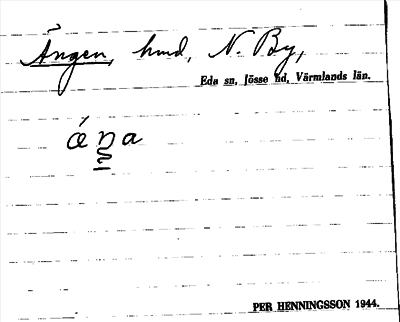 Ången, hmd, N. By,
Eda sn, Jösse hd, Värmlands län.
PER HENNINGSSON 1944.